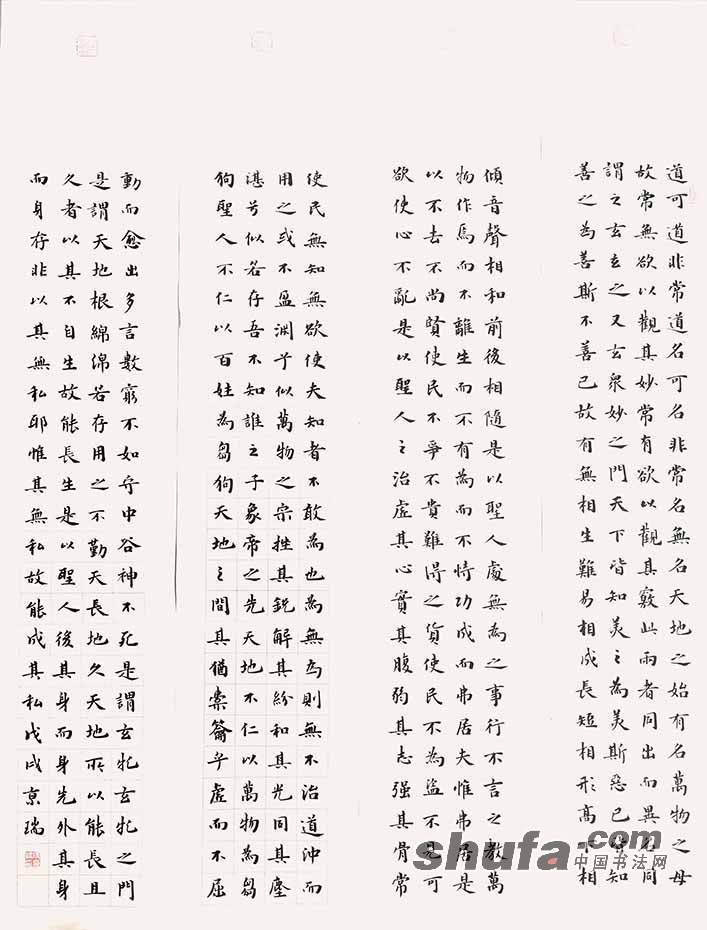 道可道非常道名可名非常名無名天地之始有名萬物之母
故常無欲以觀其妙常有欲以觀其竅此兩者同出而異名同
謂之玄玄之又玄衆妙之門天下皆知美之為美斯惡已皆知
善之為善斯不善已故有無相生難易相成長短相形髙下相
傾音聲相和前後相隨是以聖人處無為之事行不言之教萬
物作焉而不離生而不有為而不恃功成而弗居夫惟弗居是
以不去不尚賢使民不爭不貴難得之貨使民不為盜不見可
欲使心不亂是以聖人之治虛其心實其腹弱其志强其骨常
使民無知無欲使夫知者不敢為也為無為則無不治道沖而
用之或不盈淵乎似萬物之宗挫其銳解其紛和其光同其塵
湛兮似若存吾不知誰之子象帝之先天地不仁以萬物為芻
狗聖人不仁以百姓為芻狗天地之間其猶橐籥乎虛而不屈
動而愈出多言數窮不如守中谷神不死是謂玄牝玄牝之門
是謂天地根綿綿若存用之不勤天長地久天地所以能長且
久者以其不自生故能長生是以聖人後其身而身先外其身
而身存非以其無私耶惟其無私故能成其私戊戌京瑞
shufa.com
中国书法网